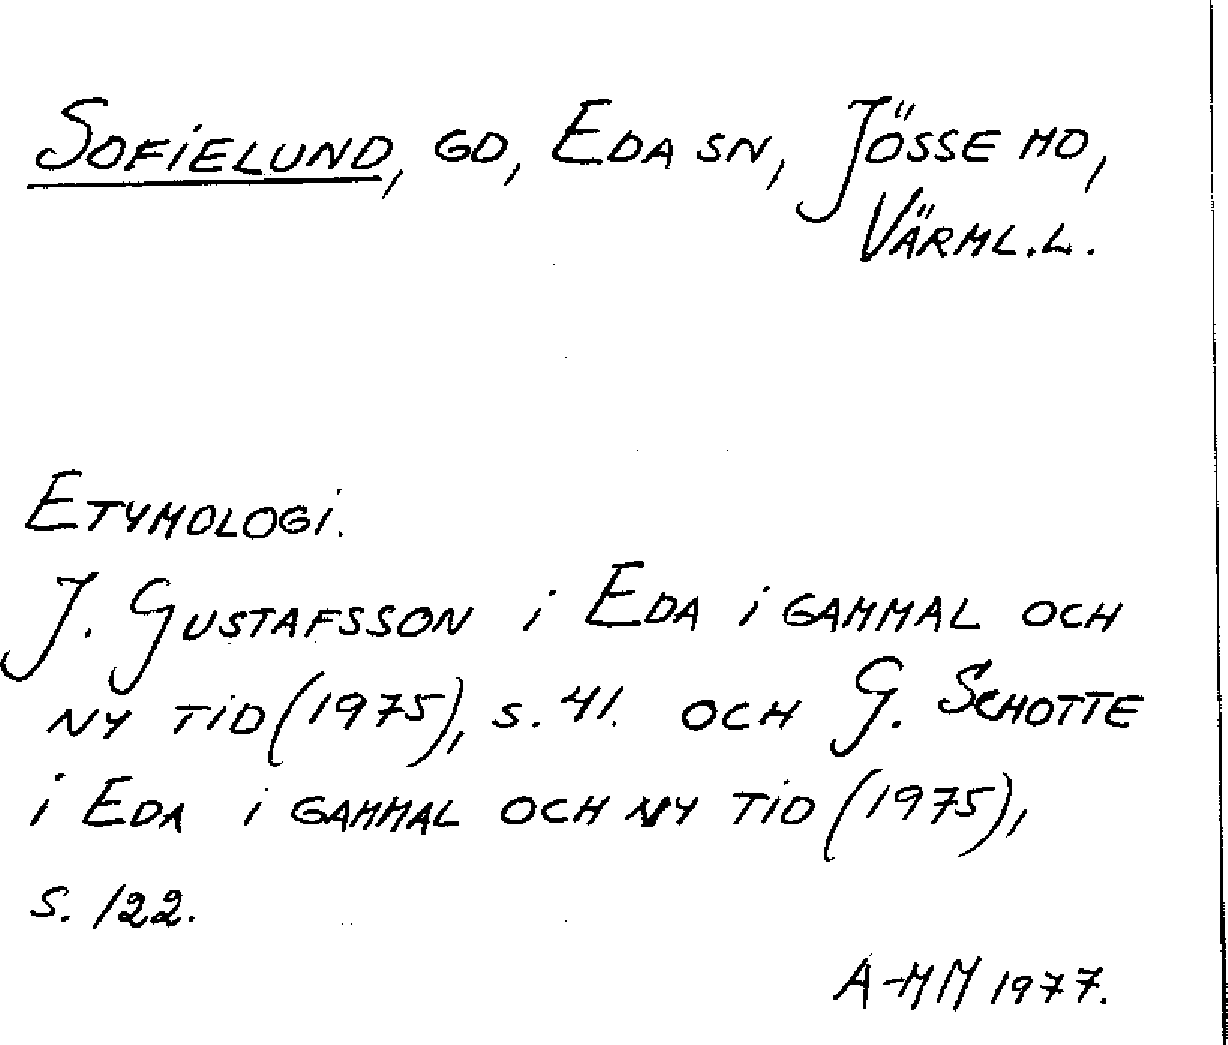 SOFIELUND, GD, EDA SN, JÖSSE HD,
VÄRML.L.
ETYMOLOGI.
J. GUSTAFSSON i EDA i GAMMAL OCH
NY TID (1975), S. 41. OCH G. SCHOTTE
i EDA i GAMMAL OCH NY TID (1975),
S. 122.
A-MM 1977.